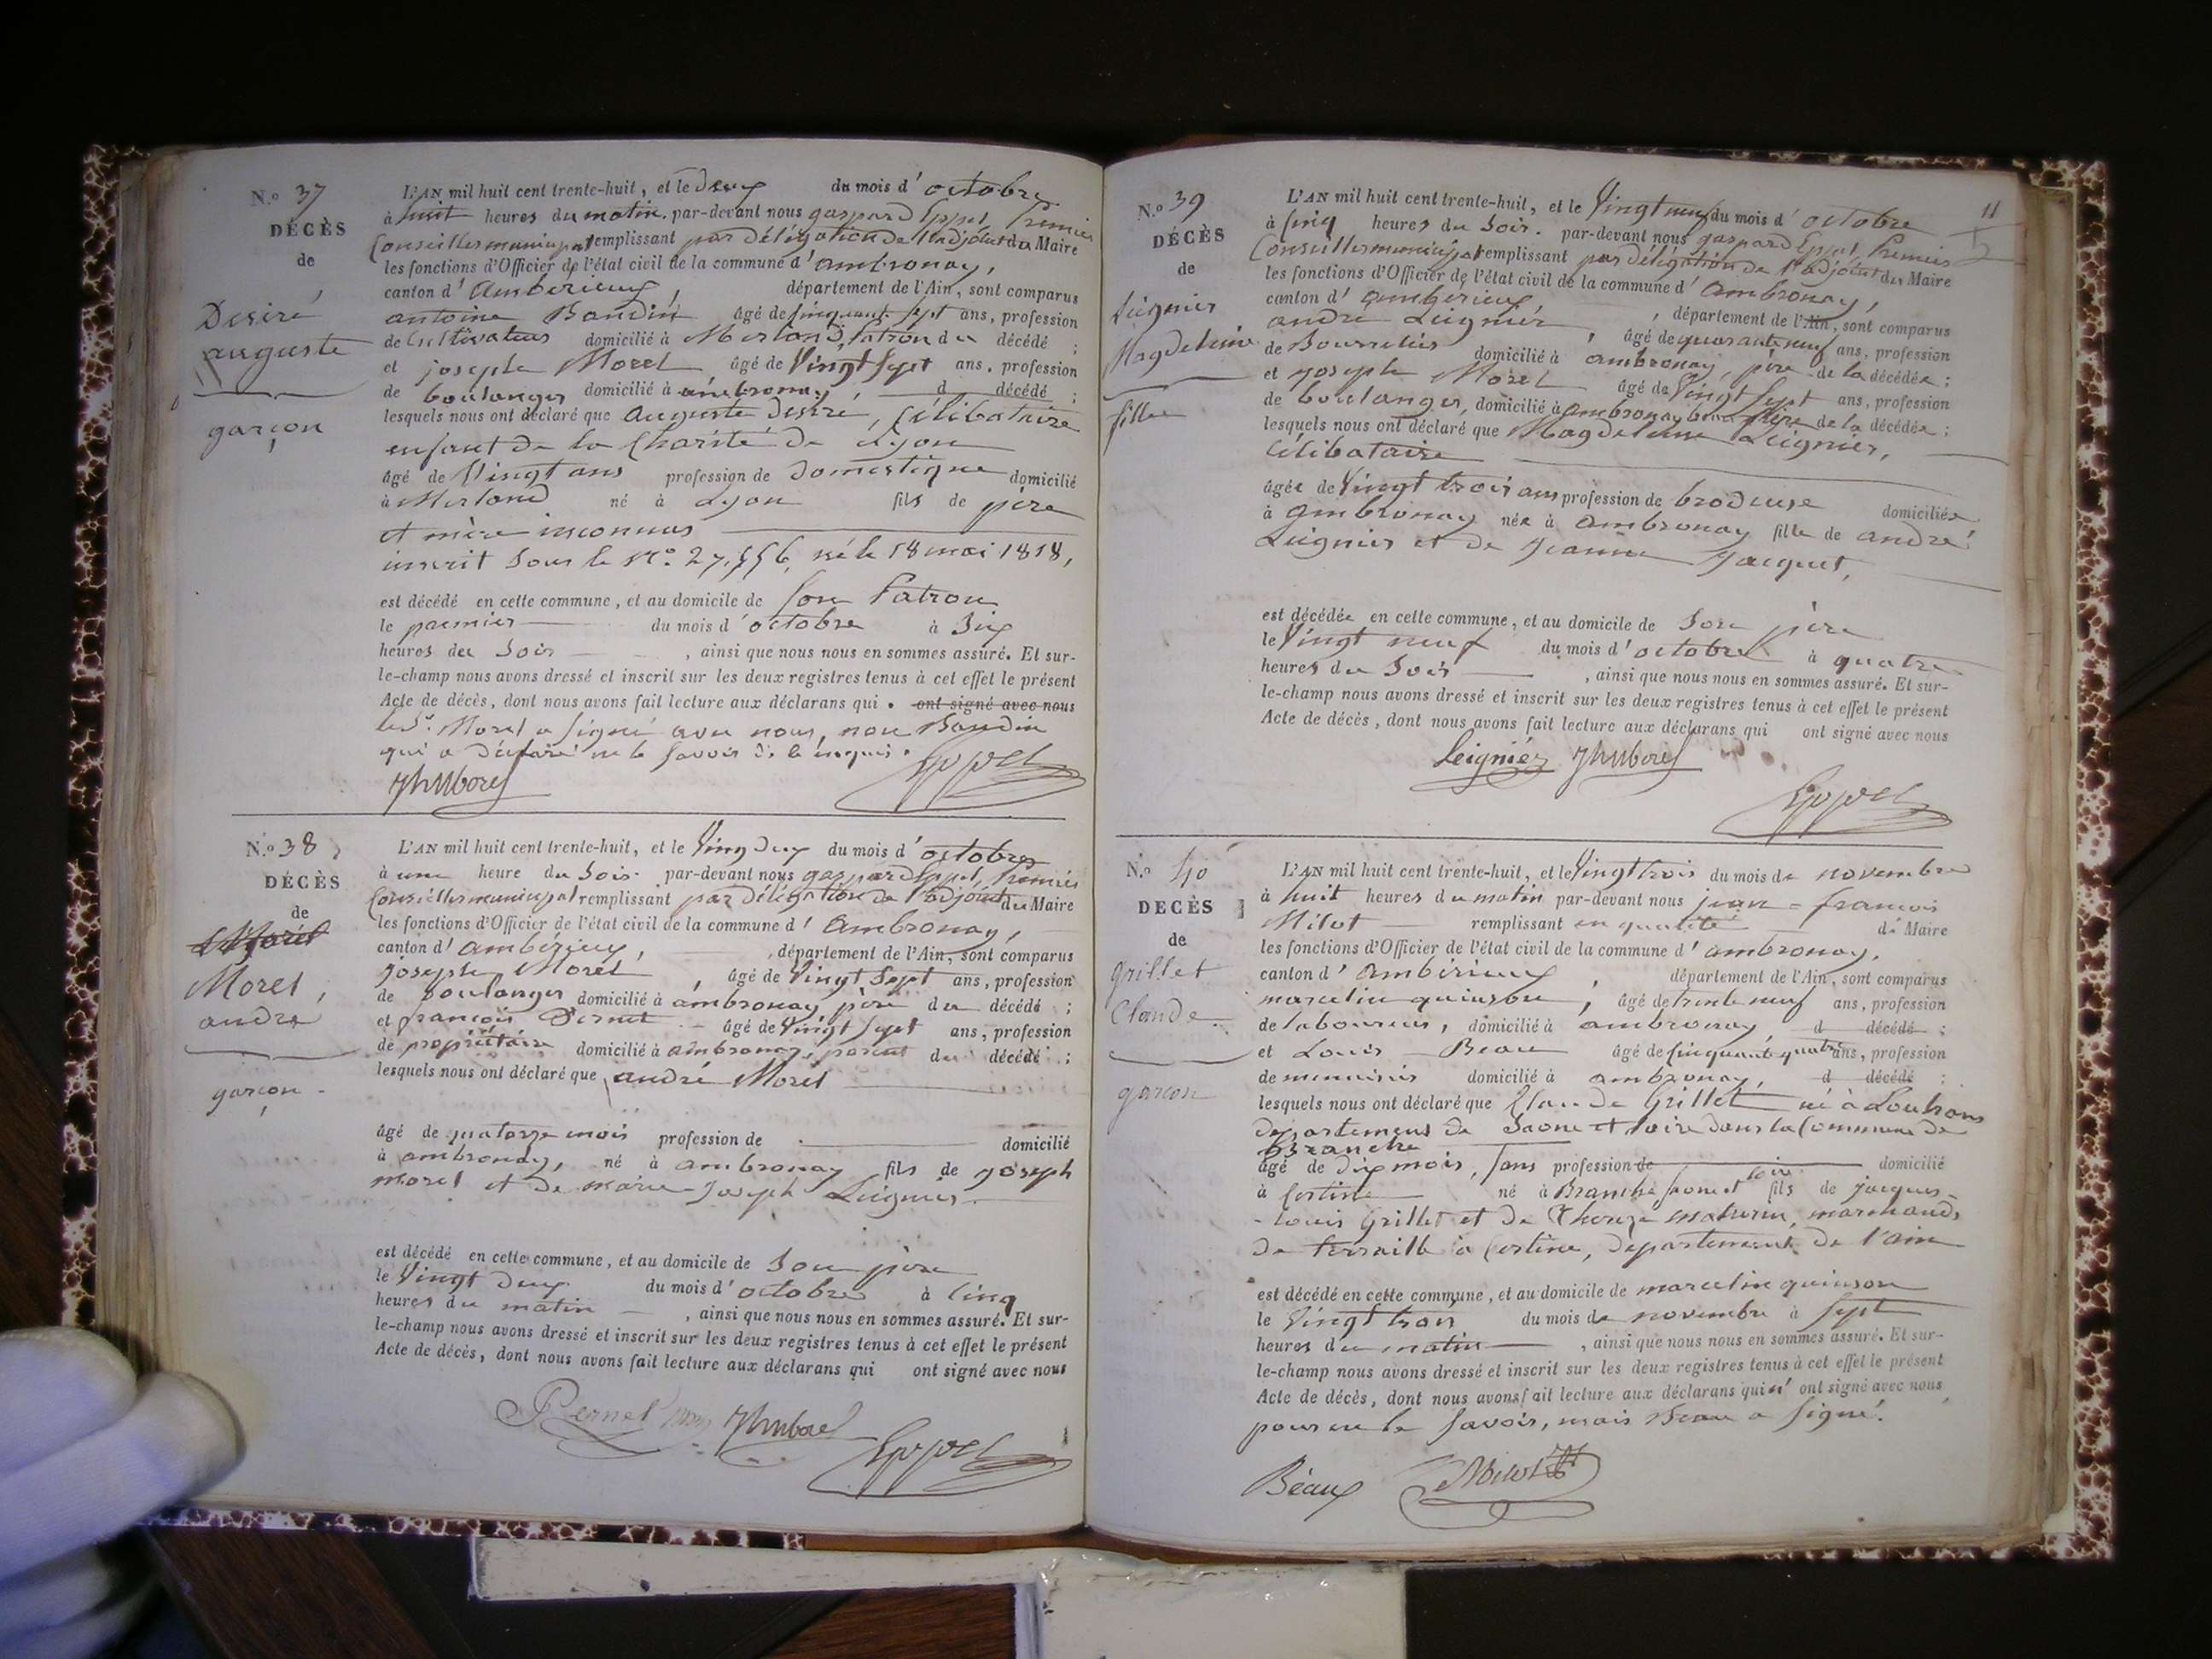 N.o 37
DÉCÈS
de
Desiré
auguste
garçon
L'AN mil huit cent trente-huit, et le deux du mois d'octobre
à huit heures du matin. par-devant nous gaspard Eppel, Premier
Conseiller municipal remplissant par délégation de l'adjoint du Maire
les fonctions d'Officier de l'état civil de la commune d'ambronay,
canton d'Amberieux, département de l'Ain, sont comparus
antoine Baudin âgé de cinquant sept ans, profession
de Cultivateur domicilié à Merland, Patron du décédé ;
et joseph Morel âgé de Vingt Sept ans, profession
de boulanger domicilié à ambronay d décédé ;
lesquels nous ont déclaré que Auguste Desiré, Célibataire
enfant de la Charité de Lyon
âgé de Vingt ans profession de Domestique domicilié
à Merland né à Lyon fils de père
et mère inconnus
inscrit sous le N.o 27,556, né le 18 mai 1818,
est décédé en cette commune, et au domicile de Son Patron
le premier du mois d'octobre à Six
heures du Soir, ainsi que nous nous en sommes assuré. Et sur-
le-champ nous avons dressé et inscrit sur les deux registres tenus à cet effet le présent
Acte de décès, dont nous avons fait lecture aux déclarans qui . ont signé avec nous
le Sr. Morel a signé avec nous, non Baudin
qui a déclaré ne le Savoir de ce enquis.
Eppel
N.o 38
DÉCÈS
de
Morel
Morel,
andré
garçon
L'AN mil huit cent trente-huit, et le Vingt Deux du mois d'octobre
à une heure du Soir. par-devant nous gaspard Eppel, Premier
Conseiller municipal remplissant par délégation de l'adjoint du Maire
les fonctions d'Officier de l'état civil de la commune d'Ambronay,
canton d'ambérieux, département de l'Ain, sont comparus
joseph Morel âgé de Vingt Sept ans, profession
de boulanger domicilié à ambronay père du décédé ;
et françois Pernet âgé de Vingt Sept ans, profession
de propriétaire domicilié à ambronay, parent du décédé ;
lesquels nous ont déclaré que andré Morel
âgé de quatorze mois profession de domicilié
à ambronay, né à ambronay fils de joseph
morel et de marie-Joseph Leignier.
est décédé en cette commune, et au domicile de Son père
le Vingt deux du mois d'octobre à Cinq
heures du matin, ainsi que nous nous en sommes assuré. Et sur-
le-champ nous avons dressé et inscrit sur les deux registres tenus à cet effet le présent
Acte de décès, dont nous avons fait lecture aux déclarans qui ont signé avec nous
Pernet
Eppel
11
N.o 39
DÉCÈS
de
Leignier
Magdeleine
fille
L'AN mil huit cent trente-huit, et le Vingt neuf du mois d'octobre
à Cinq heures du Soir. par-devant nous gaspard Eppel, Premier
Conseiller municipal remplissant par délégation de l'adjoint du Maire
les fonctions d'Officier de l'état civil de la commune d'Ambronay,
canton d'amberieux, département de l'Ain, sont comparus
andré Leignier, âgé de quarante neuf ans, profession
de Bourrelier domicilié à ambronay, père de la décédée ;
et joseph Morel âgé de Vingt Sept ans, profession
de boulanger, domicilié à ambronay beau frère de la décédée ;
lesquels nous ont déclaré que Magdeleine Leignier,
Célibataire
âgée de Vingt trois ans profession de brodeuse domiciliée
à ambronay née à ambronay fille de andré
Leignier et de Jeanne Jacquet,
est décédée en cette commune, et au domicile de Son père
le Vingt neuf du mois d'octobre à quatre
heures du Soir, ainsi que nous nous en sommes assuré. Et sur-
le-champ nous avons dressé et inscrit sur les deux registres tenus à cet effet le présent
Acte de décès, dont nous avons fait lecture aux déclarans qui ont signé avec nous
Leigniér
Eppel
N.o 40
DECÈS
de
grillet
Claude
garcon
L'AN mil huit cent trente-huit, et le Vingt trois du mois de novembre
à huit heures du matin par-devant nous jean=françois
Milot remplissant en qualité de Maire
les fonctions d'Officier de l'état civil de la commune d'ambronay,
canton d'ambérieux département de l'Ain, sont comparus
marcelin quinson, âgé de trente neuf ans, profession
de laboureur, domicilié à ambronay, d décédé ;
et Louis Beau âgé de Cinquante quatre ans, profession
de menuisier domicilié à ambronay, d décédé ;
lesquels nous ont déclaré que Claude Grillet né à Louhans
departement de Saone et loire dans la Commune de
Branche
âgé de dix mois, sans profession de domicilié
à Certine né à Branche Saone et loire fils de jacques-
-louis Grillet et de marchands
de ferraille à Certine, departement de l'ain
est décédé en cette commune, et au domicile de marcelin quinson
le Vingt trois du mois de novembre à Sept
heures du matin, ainsi que nous nous en sommes assuré. Et sur-
le-champ nous avons dressé et inscrit sur les deux registres tenus à cet effet le présent
Acte de décès, dont nous avons fait lecture aux déclarans qui n' ont signé avec nous
pour ne le Savoir, mais Beau a Signé.
Béaux Milot